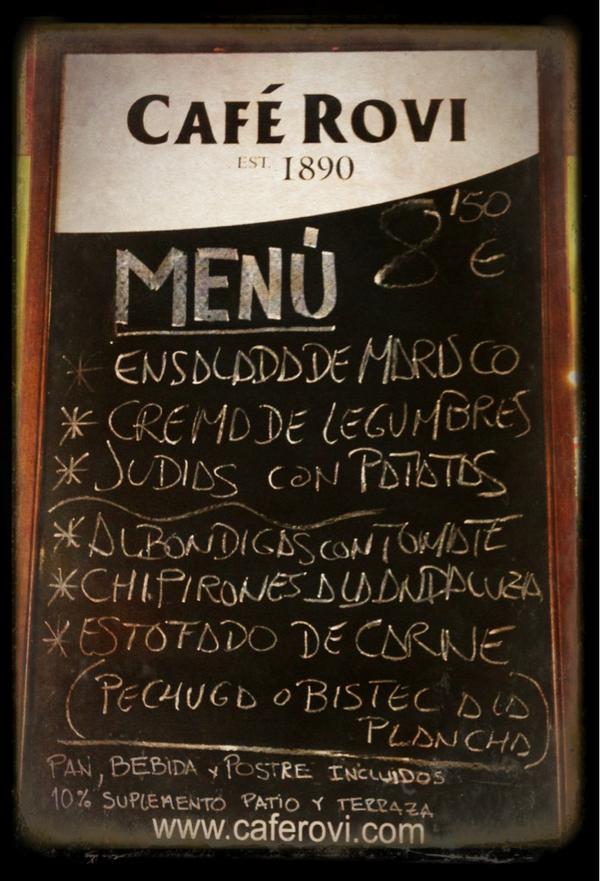 CAFÉ ROVI
EST. 1890
8'50 €
MENÚ
* ENSALADA DE MARISCO
* CREMA DE LEGUMBRES
* JUDIAS CON PATATAS
* ALBONDIGAS CON TOMATE
* CHIPIRONES A LA ANDALUZA
* ESTOFADO DE CARNE
(PECHUGA O BISTEC A LA
PLANCHA)
PAN, BEBIDA Y POSTRE INCLUIDOS
10% SUPLEMENTO PATIO Y TERRAZA
www.caferovi.com